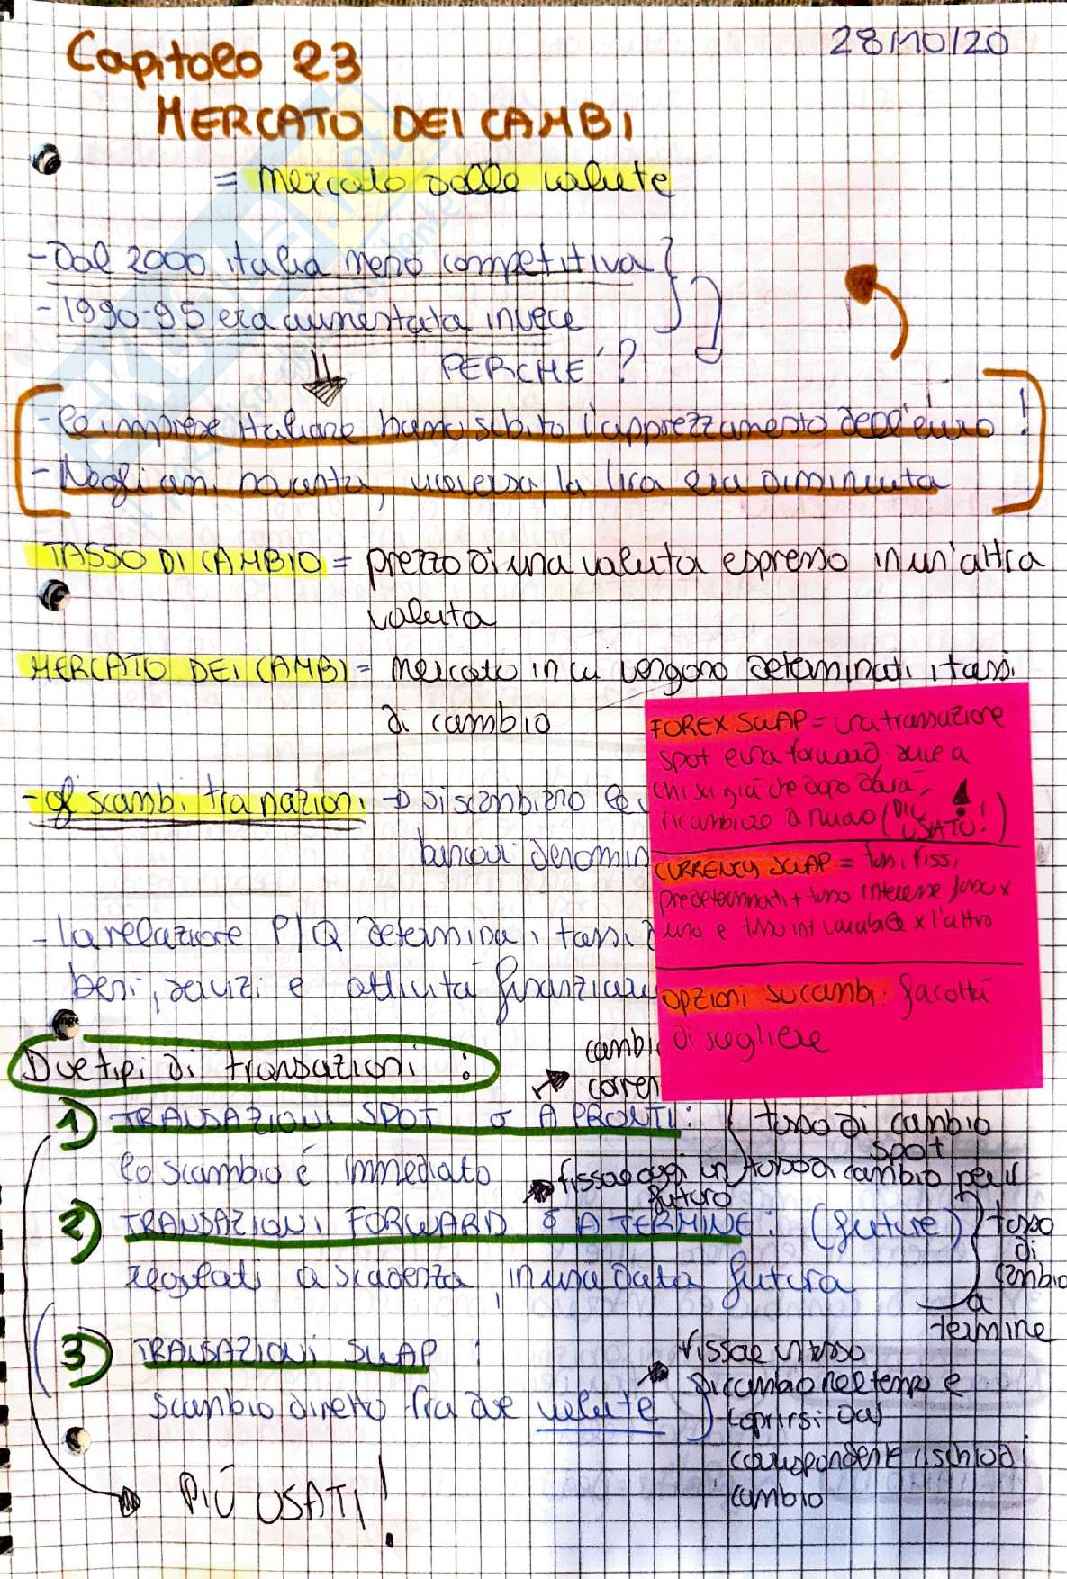 28/10/20
Capitolo 23
MERCATO DEI CAMBI
= mercato delle valute
- Dal 2000 italia meno competitiva
- 1990-95 era aumentata invece
PERCHÉ ?
- le imprese italiane hanno subito l'apprezzamento dell'euro !
- Negli anni novanta, viceversa, la lira era diminuita
TASSO DI CAMBIO = prezzo di una valuta espresso in un'altra
valuta
MERCATO DEI CAMBI = mercato in cui vengono determinati i tassi
di cambio
- gli scambi tra nazioni → si scambiano
bancari denomin
- La relazione P/Q determina i tassi
beni, servizi e attività finanziarie
FOREX SWAP = una transazione
spot e una forward,
chi si già che dopo dovrà
ricambiare di nuovo (PIÙ
USATO!)
CURRENCY SWAP = tassi fissi
predeterminati + tasso interesse fisso x
uno e tasso int variabile x l'altro
OPZIONI SU CAMBI: facoltà
di scegliere
Due tipi di transazioni :
cambi
corren
1) TRANSAZIONI SPOT o A PRONTI:
tasso di cambio
spot
lo scambio è immediato
fissare oggi un tasso di cambio per il
futuro
2) TRANSAZIONI FORWARD o A TERMINE: (future)
regolati a scadenza, in una data futura
tasso
di
cambio
a
termine
3) TRANSAZIONI SWAP :
scambio diretto fra due valute
fissare un tasso
di cambio nel tempo e
coprirsi dal
corrispondente rischio di
cambio
PIÙ USATI!